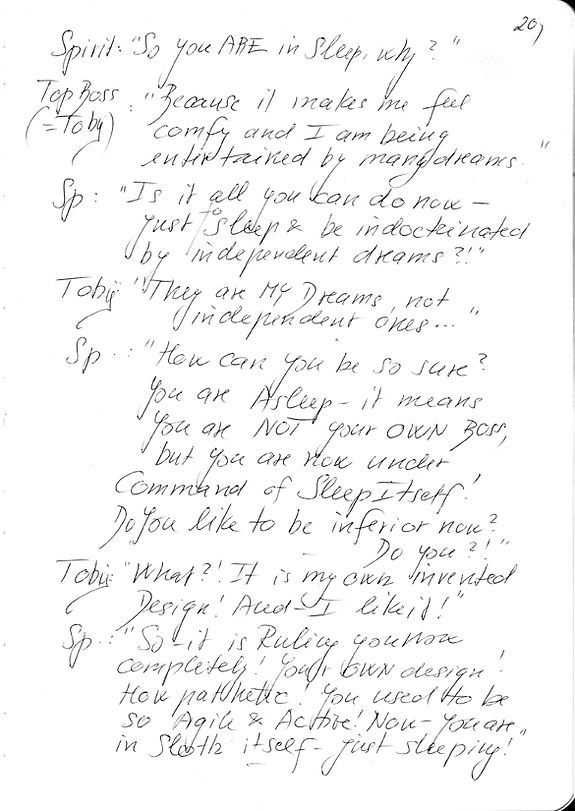 20,
Spirit: "So you ARE in Sleep, why?"
Top Boss : "Because it makes me feel
(=Toby) comfy and I am being
entirtained by many dreams."
Sp: "Is it all you can do now –
just to Sleep & be indoctrinated
by independent dreams?!"
Toby: "They are MY Dreams, not
independent ones..."
Sp : "How can you be so sure?
You are Asleep – it means
You are NOT your OWN Boss,
but you are now under
Command of Sleep Itself!
Do you like to be inferior now?
– Do you?!"
Toby: "What?! It is my own invented
Design! And – I like it!"
Sp: "So – it is Ruling you now
completely! Your OWN design!
How pathhetic! You used to be
so Agile & Active! Now – you are
in Sloth itself – just sleeping!"